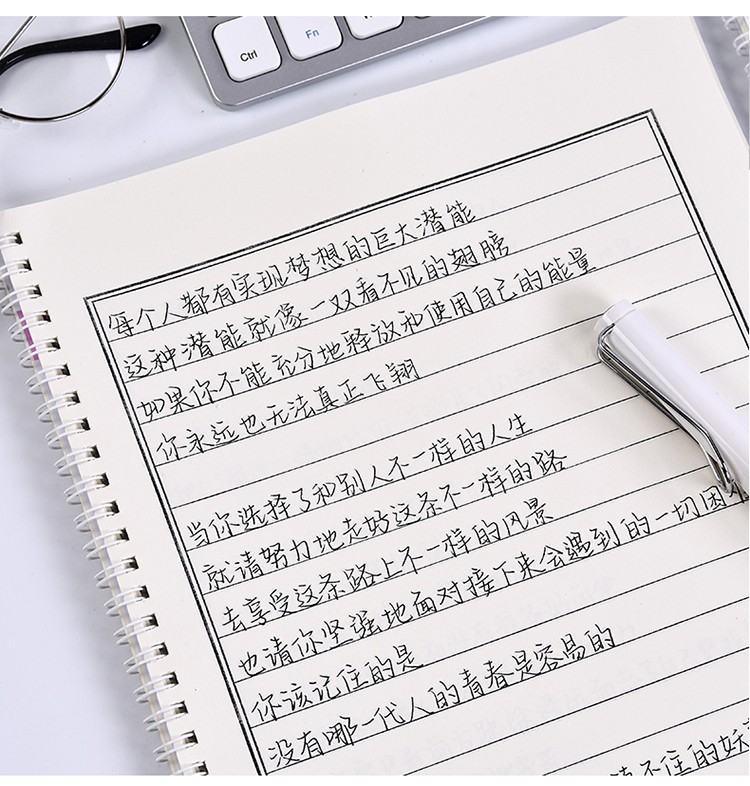 Ctrl
Fn
每个人都有实现梦想的巨大潜能
这种潜能就像一双看不见的翅膀
如果你不能充分地释放和使用自己的能量
你永远也无法真正飞翔
当你选择了和别人不一样的人生
就请努力地走好这条不一样的路
去享受这条路上不一样的风景
也请你坚强地面对接下来会遇到的一切困
你该记住的是
没有哪一代人的青春是容易的
不住的妖